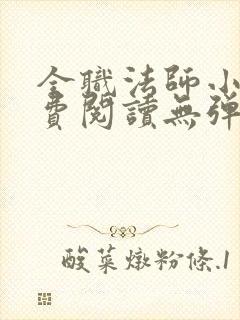 全職法師小
費閱讀無彈
酸菜燉粉條.1